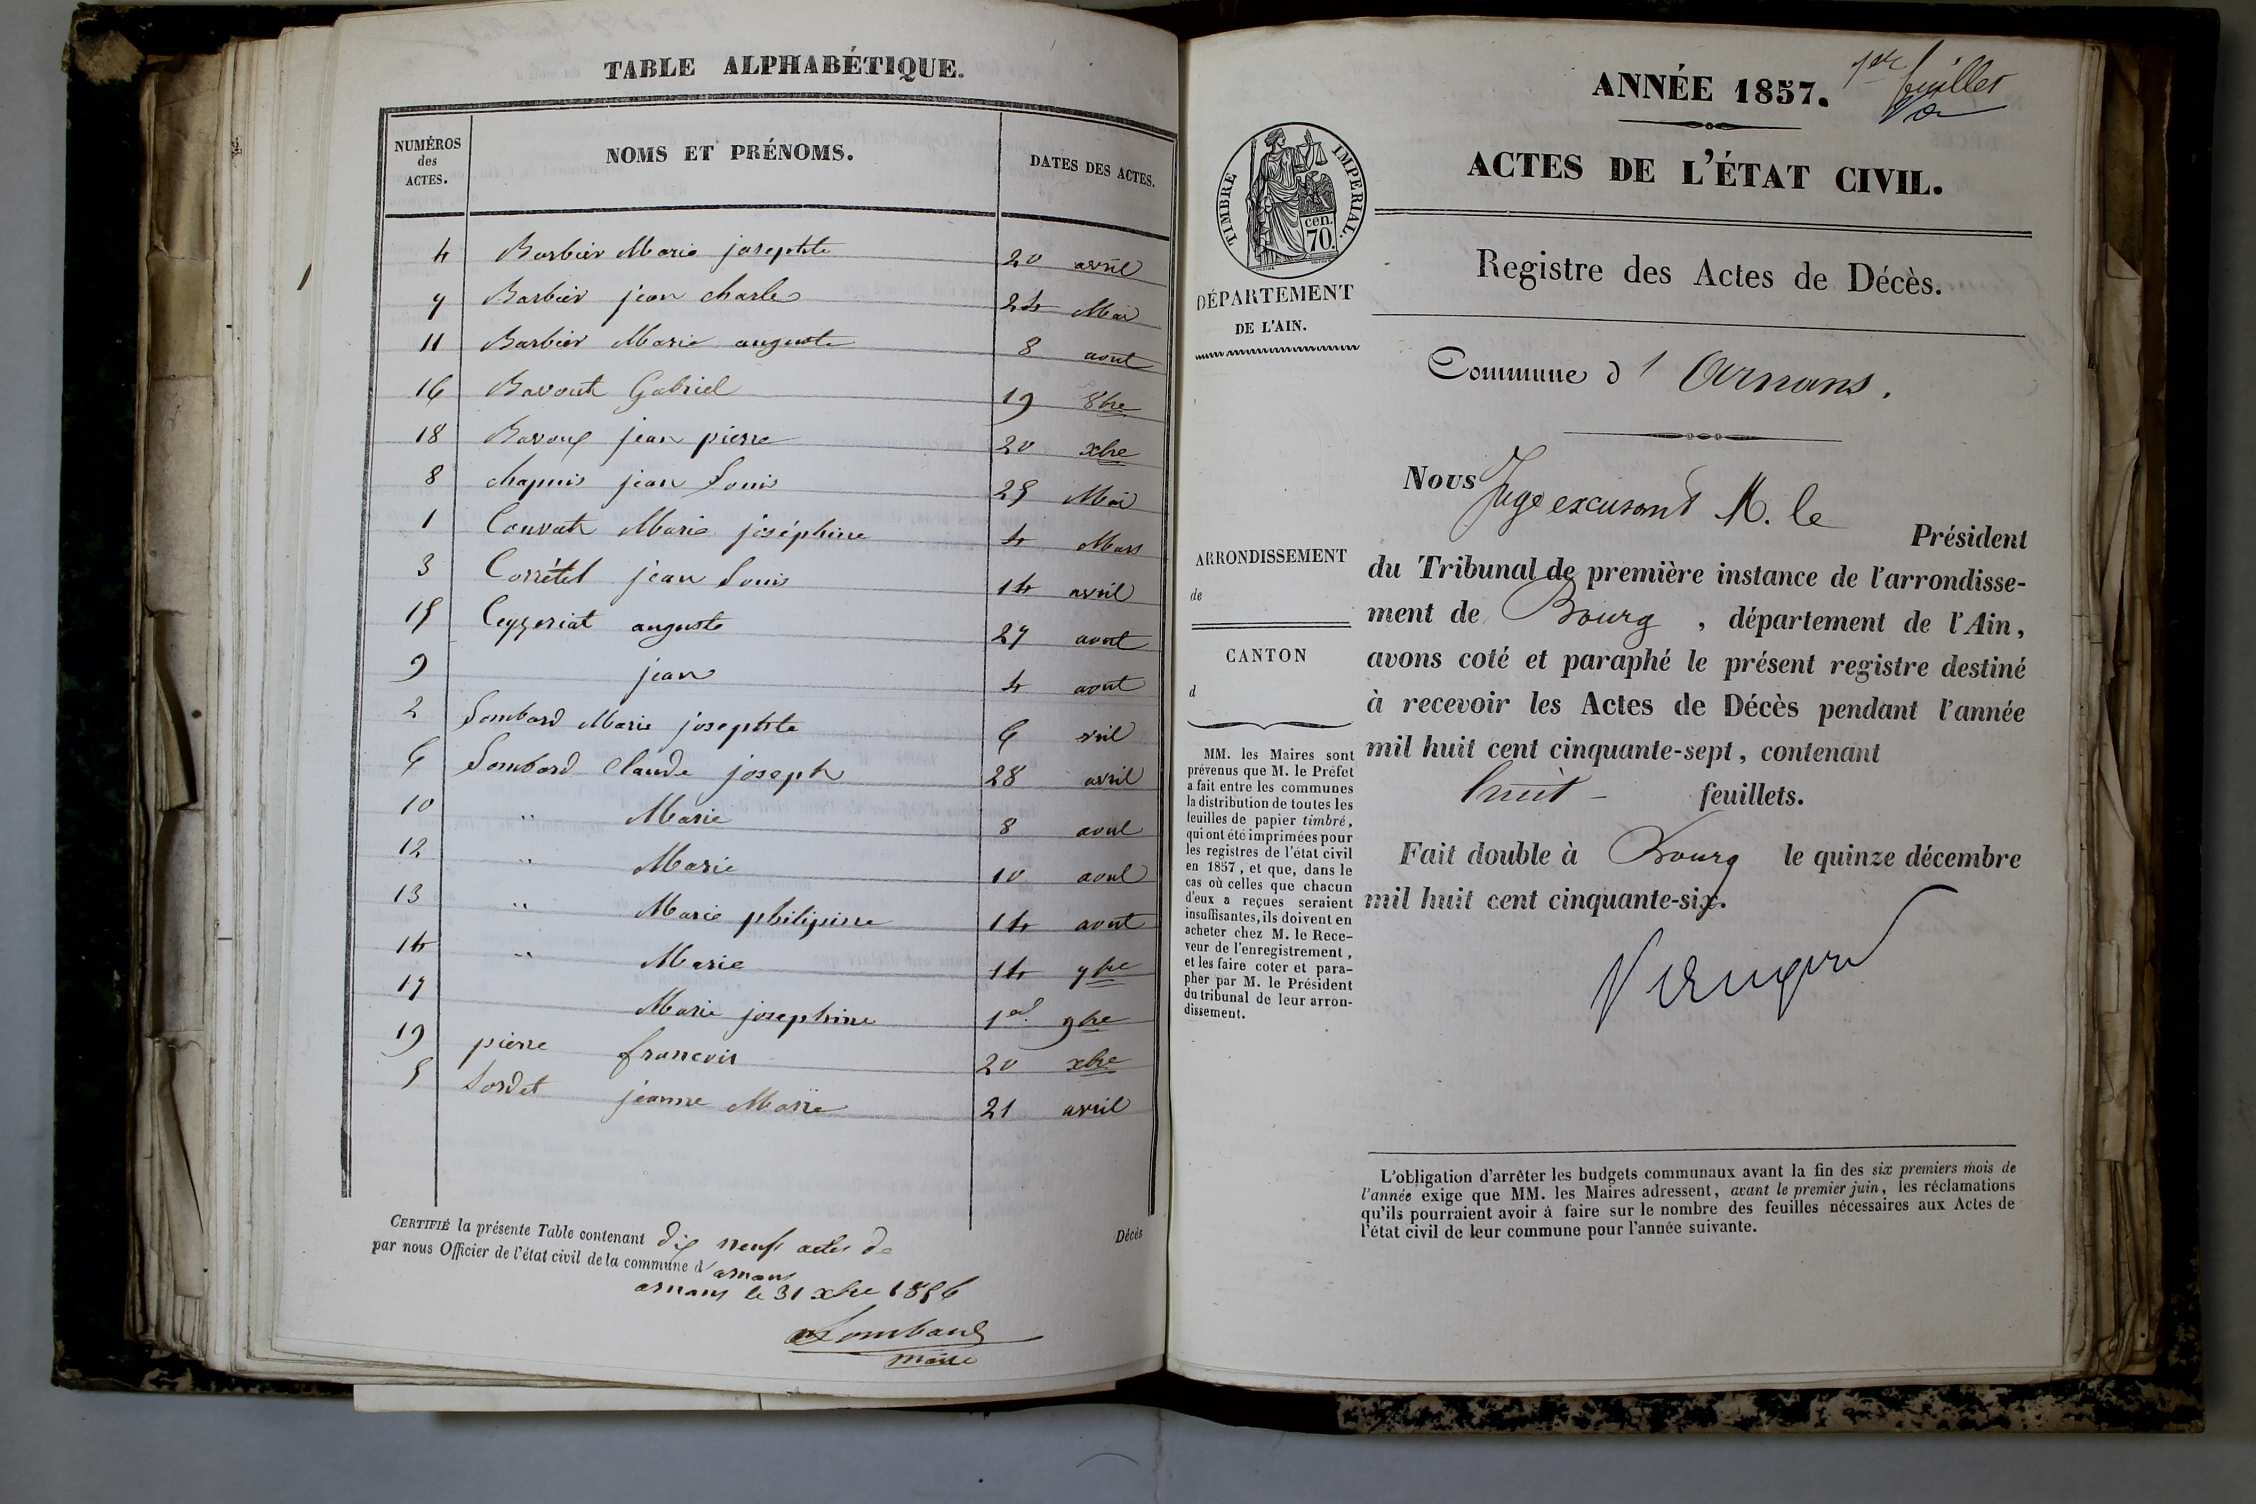 TABLE ALPHABÉTIQUE.
NUMÉROS des ACTES. NOMS ET PRÉNOMS. DATES DES ACTES.
4 Barbier Marie josephte 20 avril
7 Barbier jean charles 24 Mai
11 Barbier Marie auguste 8 aout
16 Bavout Gabriel 19 8bre
18 Bavoux jean pierre 20 xbre
8 chapuis jean Louis 25 Mai
1 Convath Marie joséphine 4 Mars
3 Corrétel jean Louis 14 avril
15 Ceyzeriat auguste 27 aout
9 jean 4 aout
2 Lombard Marie josephte 6 vril
6 Lombard Claude joseph 28 avril
10 " Marie 8 aout
12 " Marie 10 aout
13 " Marie philipine 14 aout
14 " Marie 14 7bre
17 Marie josephine 1er 9bre
19 pierre francois 20 xbre
5 Sordet jeanne Marie 21 avril
CERTIFIÉ la présente Table contenant dix neufs actes de Décès
par nous Officier de l'état civil de la commune d'arnans
arnans le 31 xbre 1856
Lombard
Maire
1er feuillet
ANNÉE 1857.
ACTES DE L'ÉTAT CIVIL.
TIMBRE IMPERIAL.
cen.
70.
DÉPARTEMENT
DE L'AIN.
Registre des Actes de Décès.
Commune d'Arnans.
Nous Juge excusant M. le Président
du Tribunal de première instance de l'arrondisse-
ment de Bourg, département de l'Ain,
avons coté et paraphé le présent registre destiné
à recevoir les Actes de Décès pendant l'année
mil huit cent cinquante-sept, contenant
huit - feuillets.
Fait double à Bourg le quinze décembre
mil huit cent cinquante-six.
ARRONDISSEMENT
de
CANTON
d
MM. les Maires sont
prévenus que M. le Préfet
a fait entre les communes
la distribution de toutes les
feuilles de papier timbré,
qui ont été imprimées pour
les registres de l'état civil
en 1857, et que, dans le
cas où celles que chacun
d'eux a reçues seraient
insuffisantes, ils doivent en
acheter chez M. le Rece-
veur de l'enregistrement,
et les faire coter et para-
pher par M. le Président
du tribunal de leur arron-
dissement.
L'obligation d'arrêter les budgets communaux avant la fin des six premiers mois de
l'année exige que MM. les Maires adressent, avant le premier juin, les réclamations
qu'ils pourraient avoir à faire sur le nombre des feuilles nécessaires aux Actes de
l'état civil de leur commune pour l'année suivante.